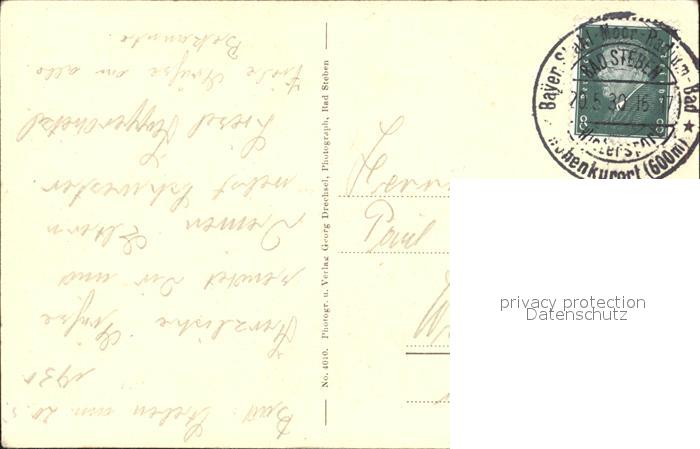 Bad Steben am 20.5.
1930
Herzliche Grüße
sendet Dir und
Deinen Eltern
nebst Schwester
Liesel
Viele Grüße an alle
Bekannte.
No. 4010. Photogr. u. Verlag Georg Drechsel, Photograph, Bad Steben
Herrn
Paul
Bayer. Staatl. Moor-Radium-Bad
BAD STEBEN
20.5.30.16-17
Wintersport
Höhenkurort (600m)
8 8
privacy protection
Datenschutz